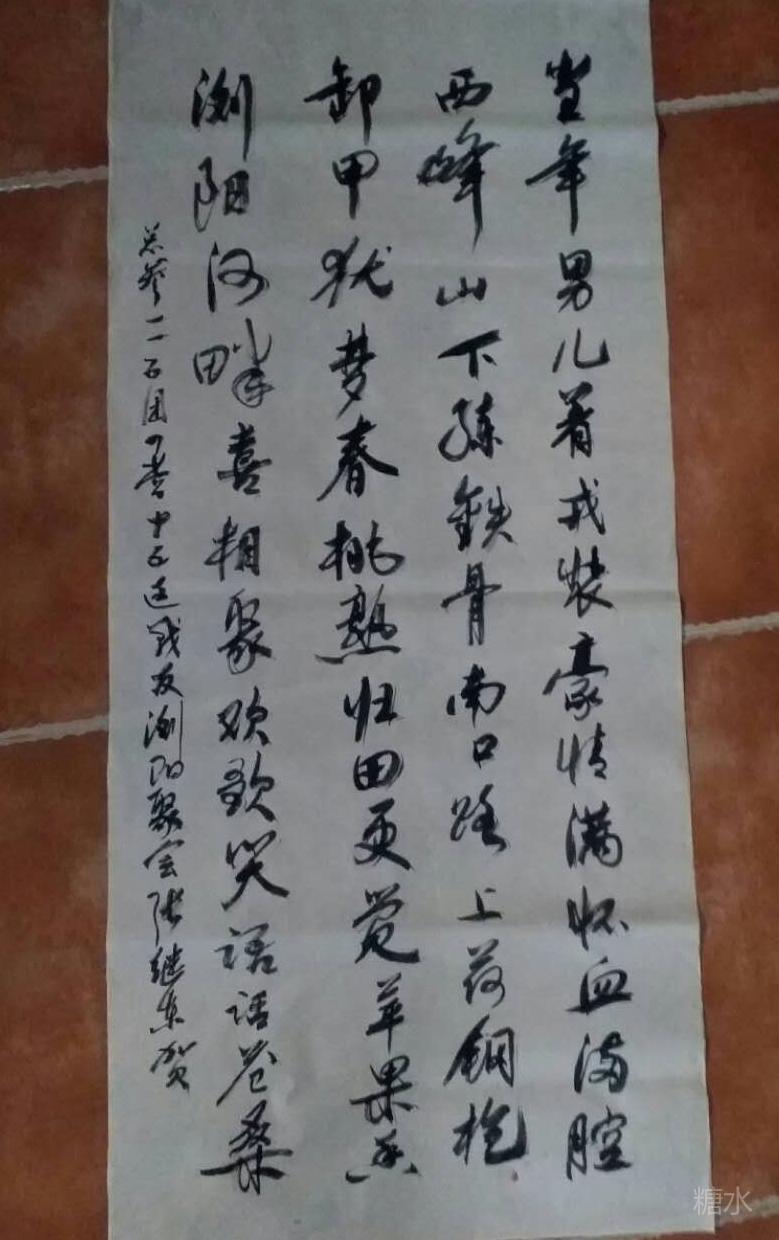 当年男儿着戎装豪情满怀血满腔
西峰山下练鉄骨南口路上荷钢枪
卸甲犹梦春桃熟归田更觉苹果香
浏阳河畔喜相聚欢歌笑语话苍桑
总参二一工团一营十二连战友浏阳聚会张继东贺
糖水